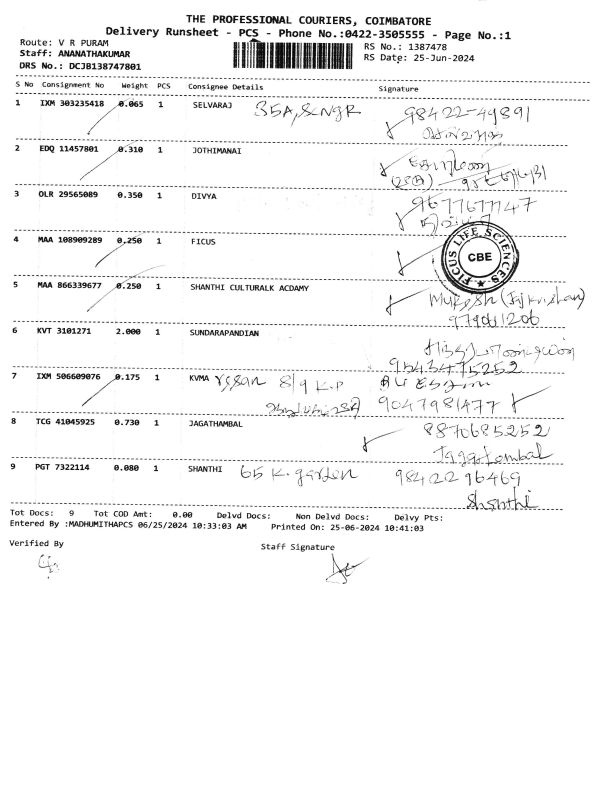 THE PROFESSIONAL COURIERS, COIMBATORE
Delivery Runsheet - PCS - Phone No.:0422-3505555 - Page No.:1
Route: V R PURAM
Staff: ANANATHAKUMAR
DRS No.: DCJB138747801
RS No.: 1387478
RS Date: 25-Jun-2024
S No Consignment No Weight PCS Consignee Details Signature
1 IXM 303235418 0.065 1 SELVARAJ 35A, 98422-49891
2 EDQ 11457801 0.310 1 JOTHIMANAI
3 OLR 29565089 0.350 1 DIVYA
4 MAA 108909289 0.250 1 FICUS
FICUS LIFE SCIENCES CBE
5 MAA 866339677 0.250 1 SHANTHI CULTURALK ACDAMY
Mukesh
6 KVT 3101271 2.000 1 SUNDARAPANDIAN
9543475252
7 IXM 506609076 0.175 1 KVMA 8/9 K.P
9047981477
8 TCG 41045925 0.730 1 JAGATHAMBAL 8870685252
9 PGT 7322114 0.080 1 SHANTHI 65 K. garden 9842296469
Shanthi
Tot Docs: 9 Tot COD Amt: 0.00 Delvd Docs: Non Delvd Docs: Delvy Pts:
Entered By :MADHUMITHAPCS 06/25/2024 10:33:03 AM Printed On: 25-06-2024 10:41:03
Verified By
Staff Signature